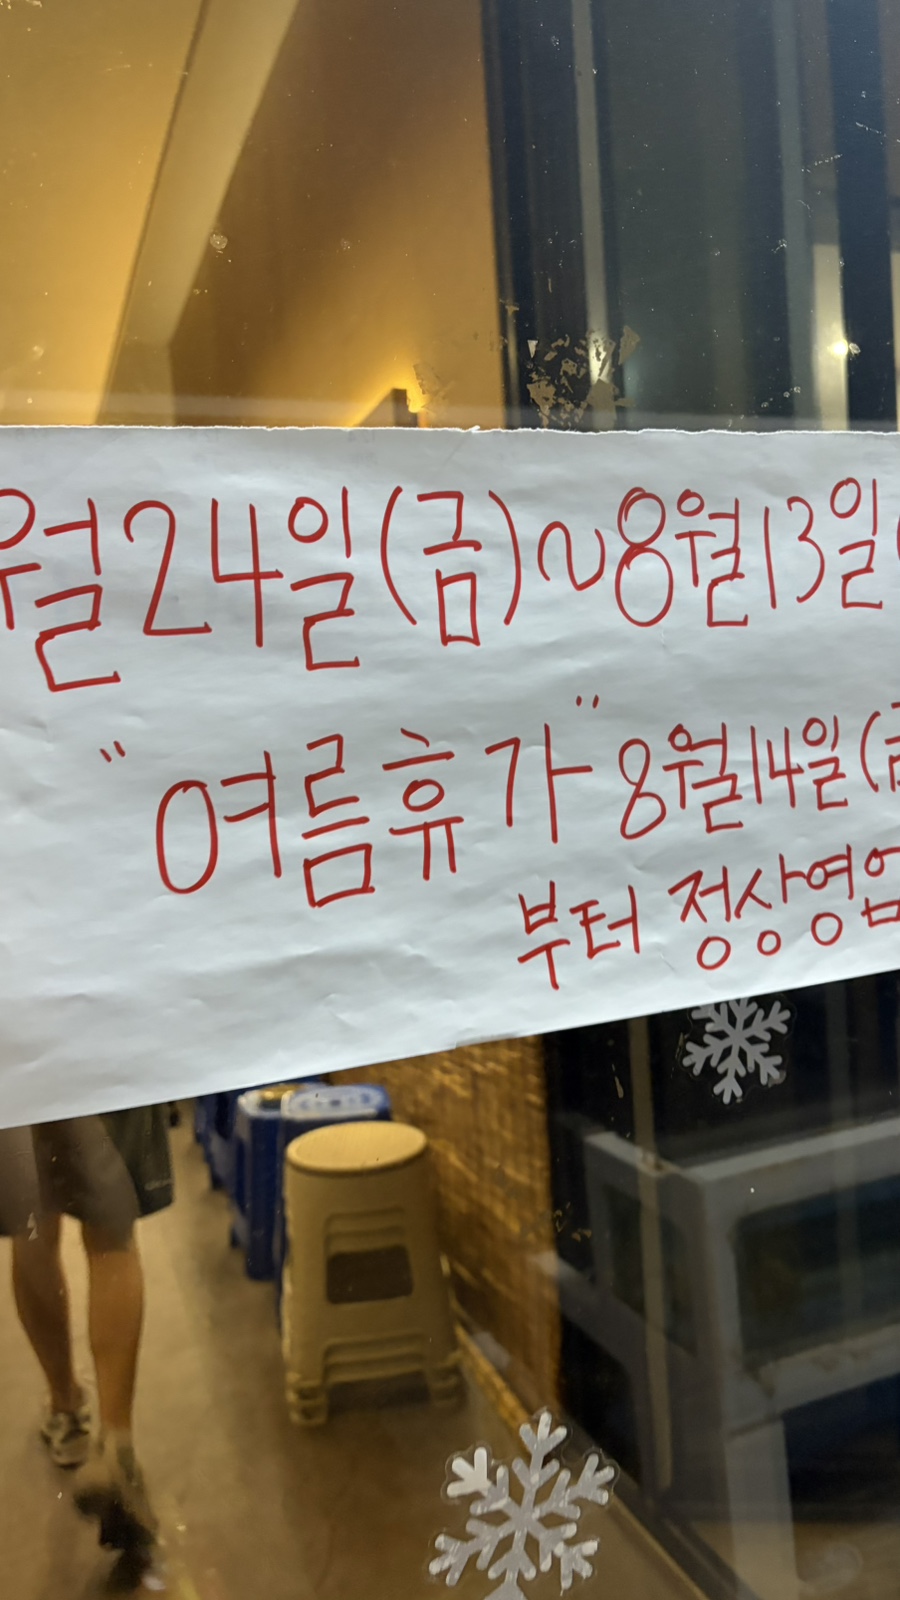 월 24일(금)~8월 13일(
"여름휴가" 8월 14일(금
부터 정상영업